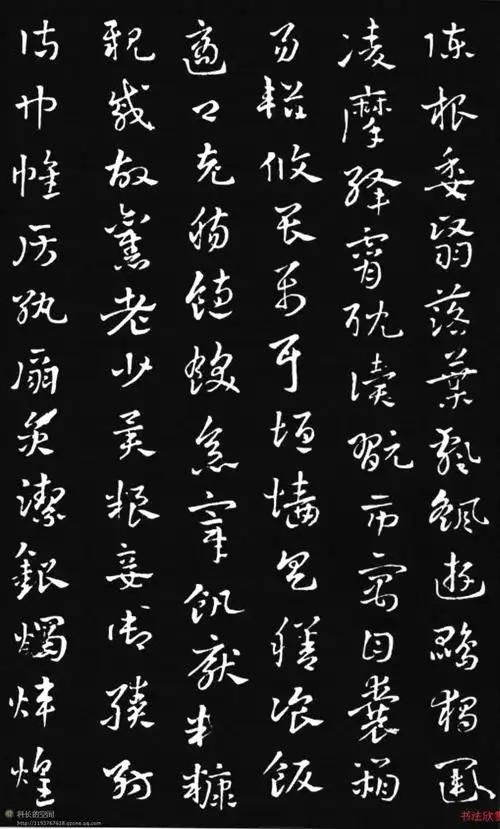 陳根委翳落葉飄颻遊鵾獨運
凌摩絳霄耽讀翫市寓目囊箱
易輶攸畏屬耳垣墻具膳飡飯
適口充腸飽飫烹宰飢厭糟糠
親戚故舊老少異糧妾御績紡
侍巾帷房紈扇員潔銀燭煒煌
科长的空间
http://1193767618.qzone.qq.com
书法欣